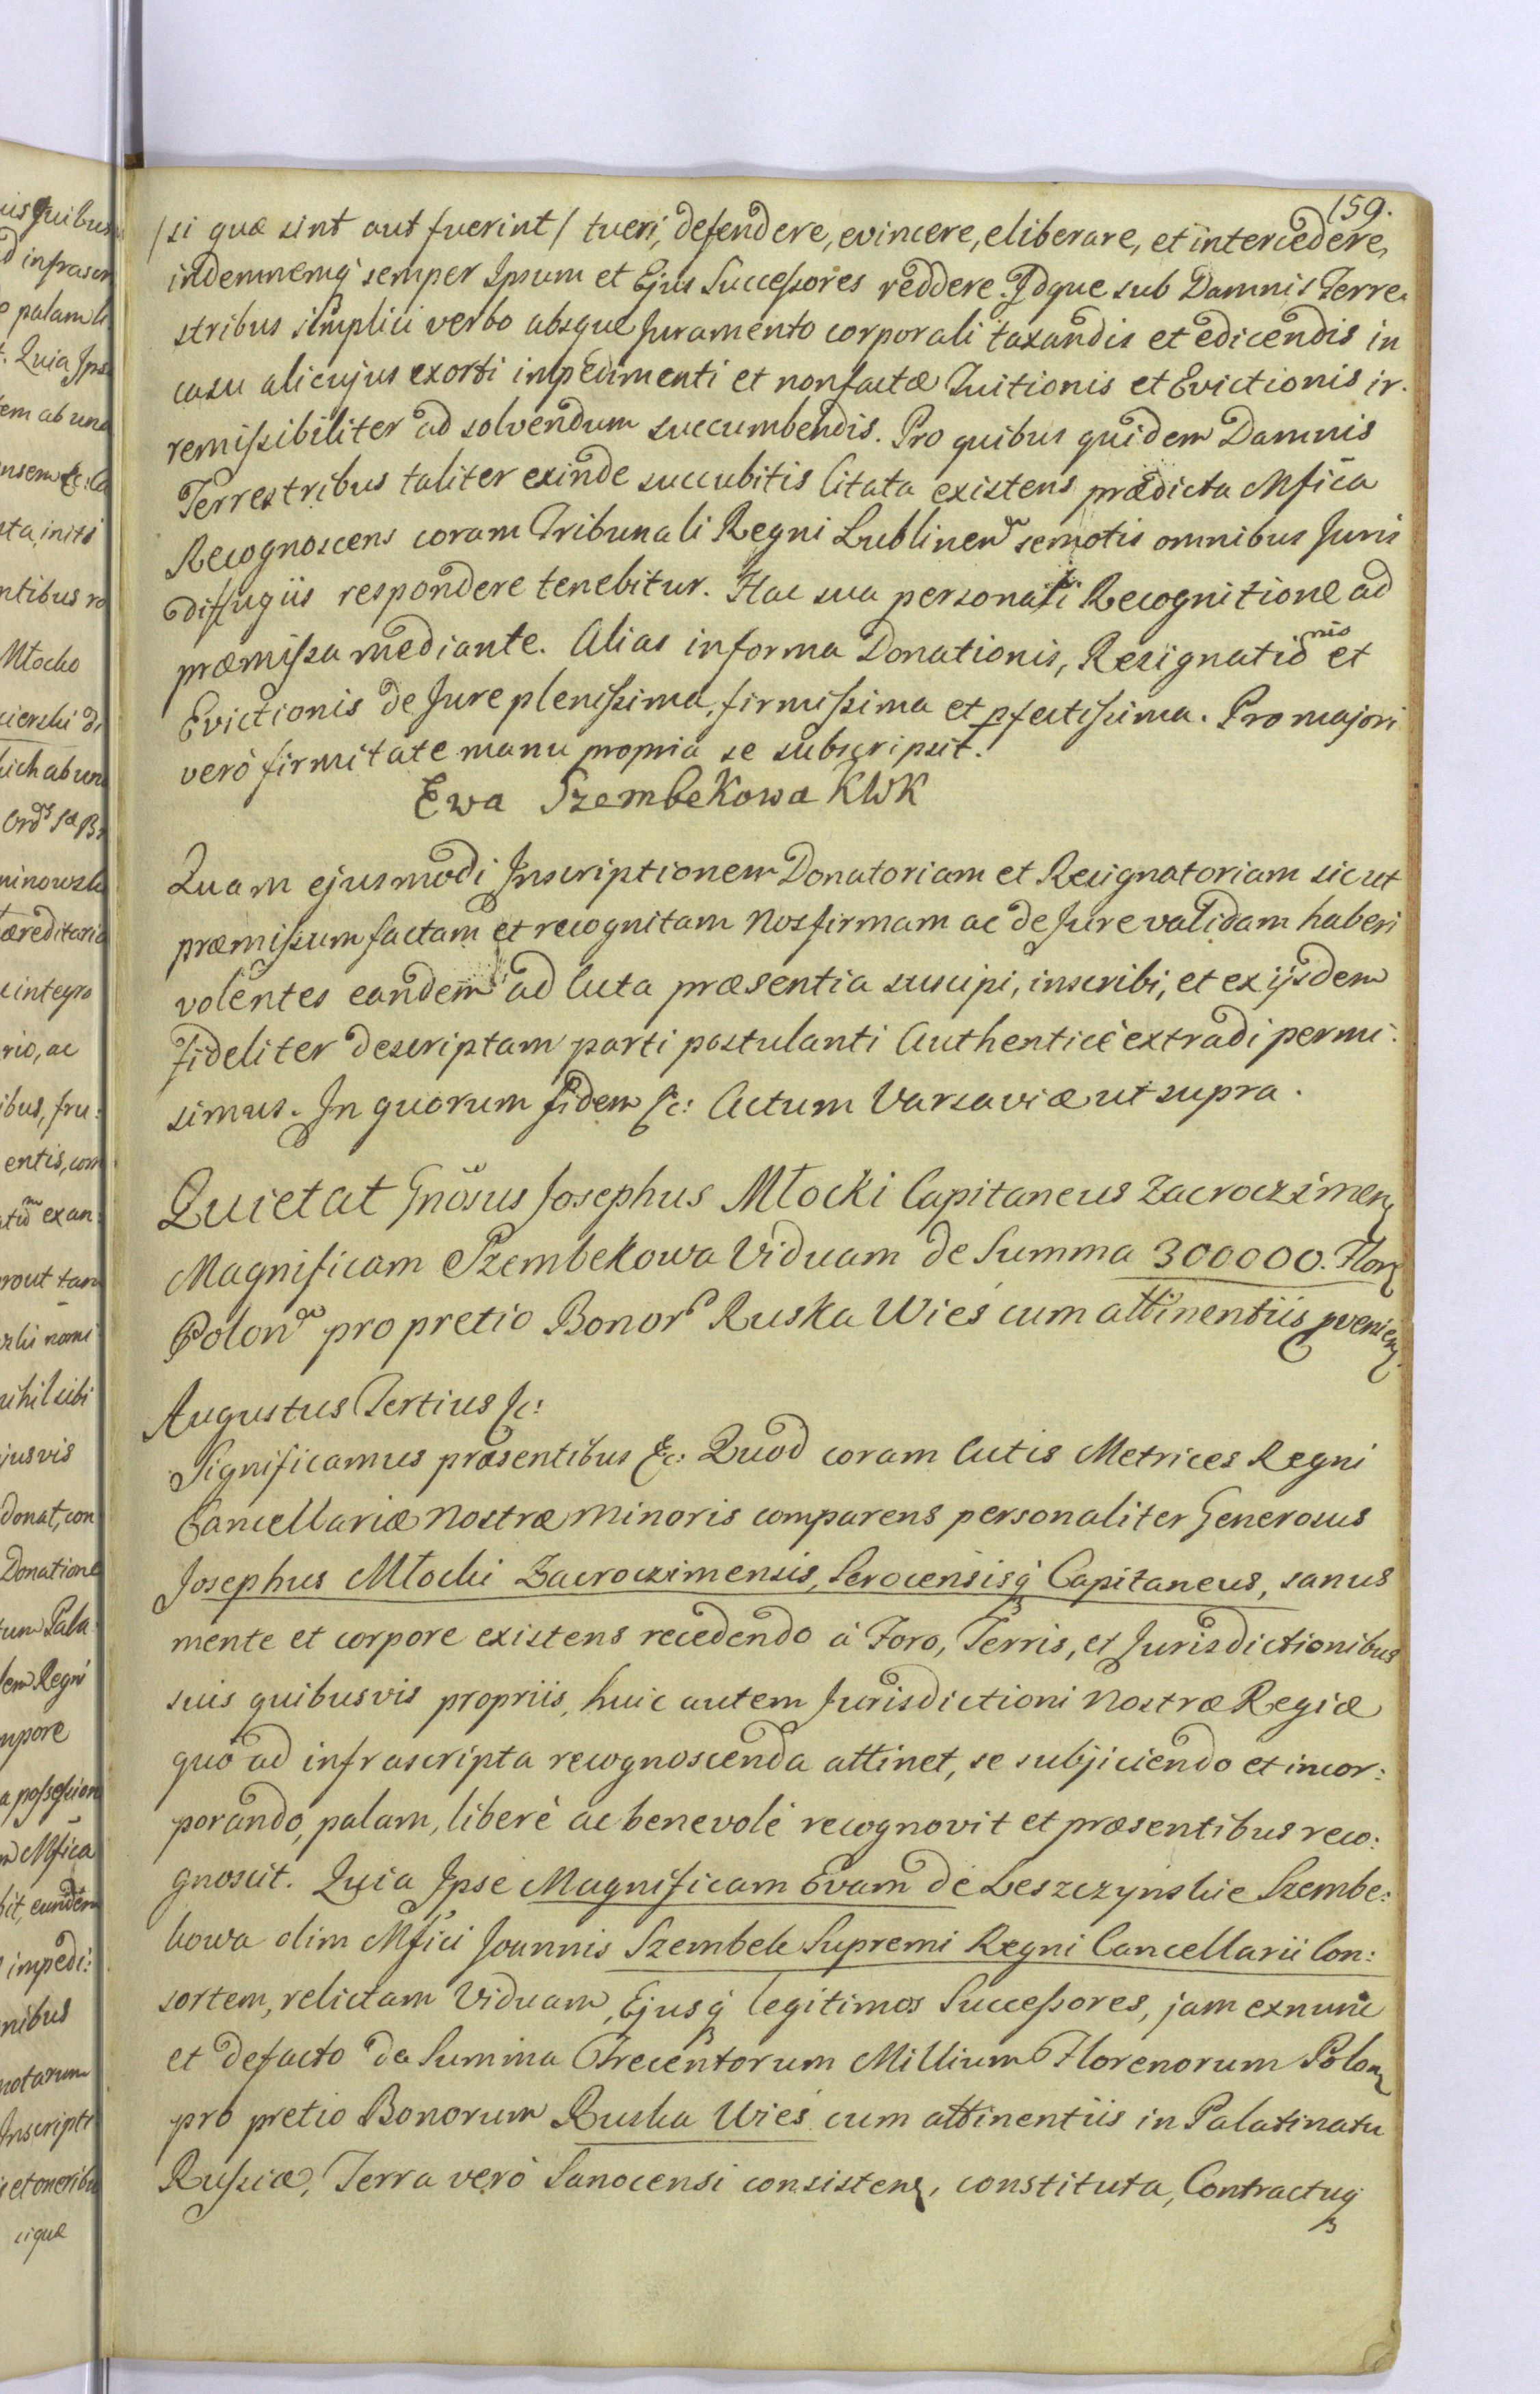 159.
/si quæ sint aut fuerint/ tueri, defendere, evincere, eliberare, et intercedere,
indemnemq3 semper Ipsum et Ejus Successores reddere. Idque sub Damnis Terre-
stribus simplici verbo absque Juramento corporali taxandis et edicendis in
casu alicujus exorti impedimenti et non factæ Tuitionis et Evictionis ir-
remissibiliter ad solvendum succumbendis. Pro quibus quidem Damnis
Terrestribus taliter exinde succubitis Citata existens prædicta Mfica
Recognoscens coram Tribunali Regni Lublinen semotis omnibus Juris
diffugiis respondere tenebitur. Hac sua personali Recognitione ad
præmissa mediante. Alias in forma Donationis, Resignationis et
Evictionis de Jure plenissima, firmissima et pfectissima. Pro majori
verò firmitate manu propria se subscripsit.
Ewa Szembekowa KWK
Quam ejusmodi Inscriptionem Donatoriam et Resignatoriam sicut
præmissum factam et recognitam Nos firmam ac de Jure validam haberi
volentes eandem ad Acta præsentia suscipi, inscribi, et ex ijsdem
fideliter descriptam parti postulanti Authenticè extradi permi-
simus. In quorum fidem &c: Actum Varsaviæ ut supra.
Quietat Gnosus Josephus Młocki Capitaneus Zacroczimen
Magnificam Szembekowa Viduam de Summa 300000. Flor
Polon pro pretio Bonor Ruska Wieś cum attinentiis pvenien
Augustus Tertius &c:
Significamus præsentibus &c: Quod coram Actis Metrices Regni
Cancellariæ Nostræ Minoris comparens personaliter Generosus
Josephus Młocki Zacroczimensis, Serocensisq3 Capitaneus, sanus
mente et corpore existens recedendo à Foro, Terris, et Jurisdictionibus
suis quibusvis propriis, huic autem Jurisdictioni Nostræ Regiæ
quò ad infrascripta recognoscenda attinet, se subjiciendo et incor:
porando, palam, liberè ac benevolè recognovit et præsentibus reco:
gnoscit. Quia Ipse Magnificam Evam de Leszczynskie Szembe:
kowa olim Mfici Joannis Szembek Supremi Regni Cancellarii Con:
sortem, relictam Viduam, Ejusq3 legitimos Successores, jam exnunc
et defacto de Summa Trecentorum Millium Florenorum Polon
pro pretio Bonorum Ruska Wieś cum attinentiis in Palatinatu
Russiæ, Terra verò Sanocensi consisten, constituta, Contractuq3